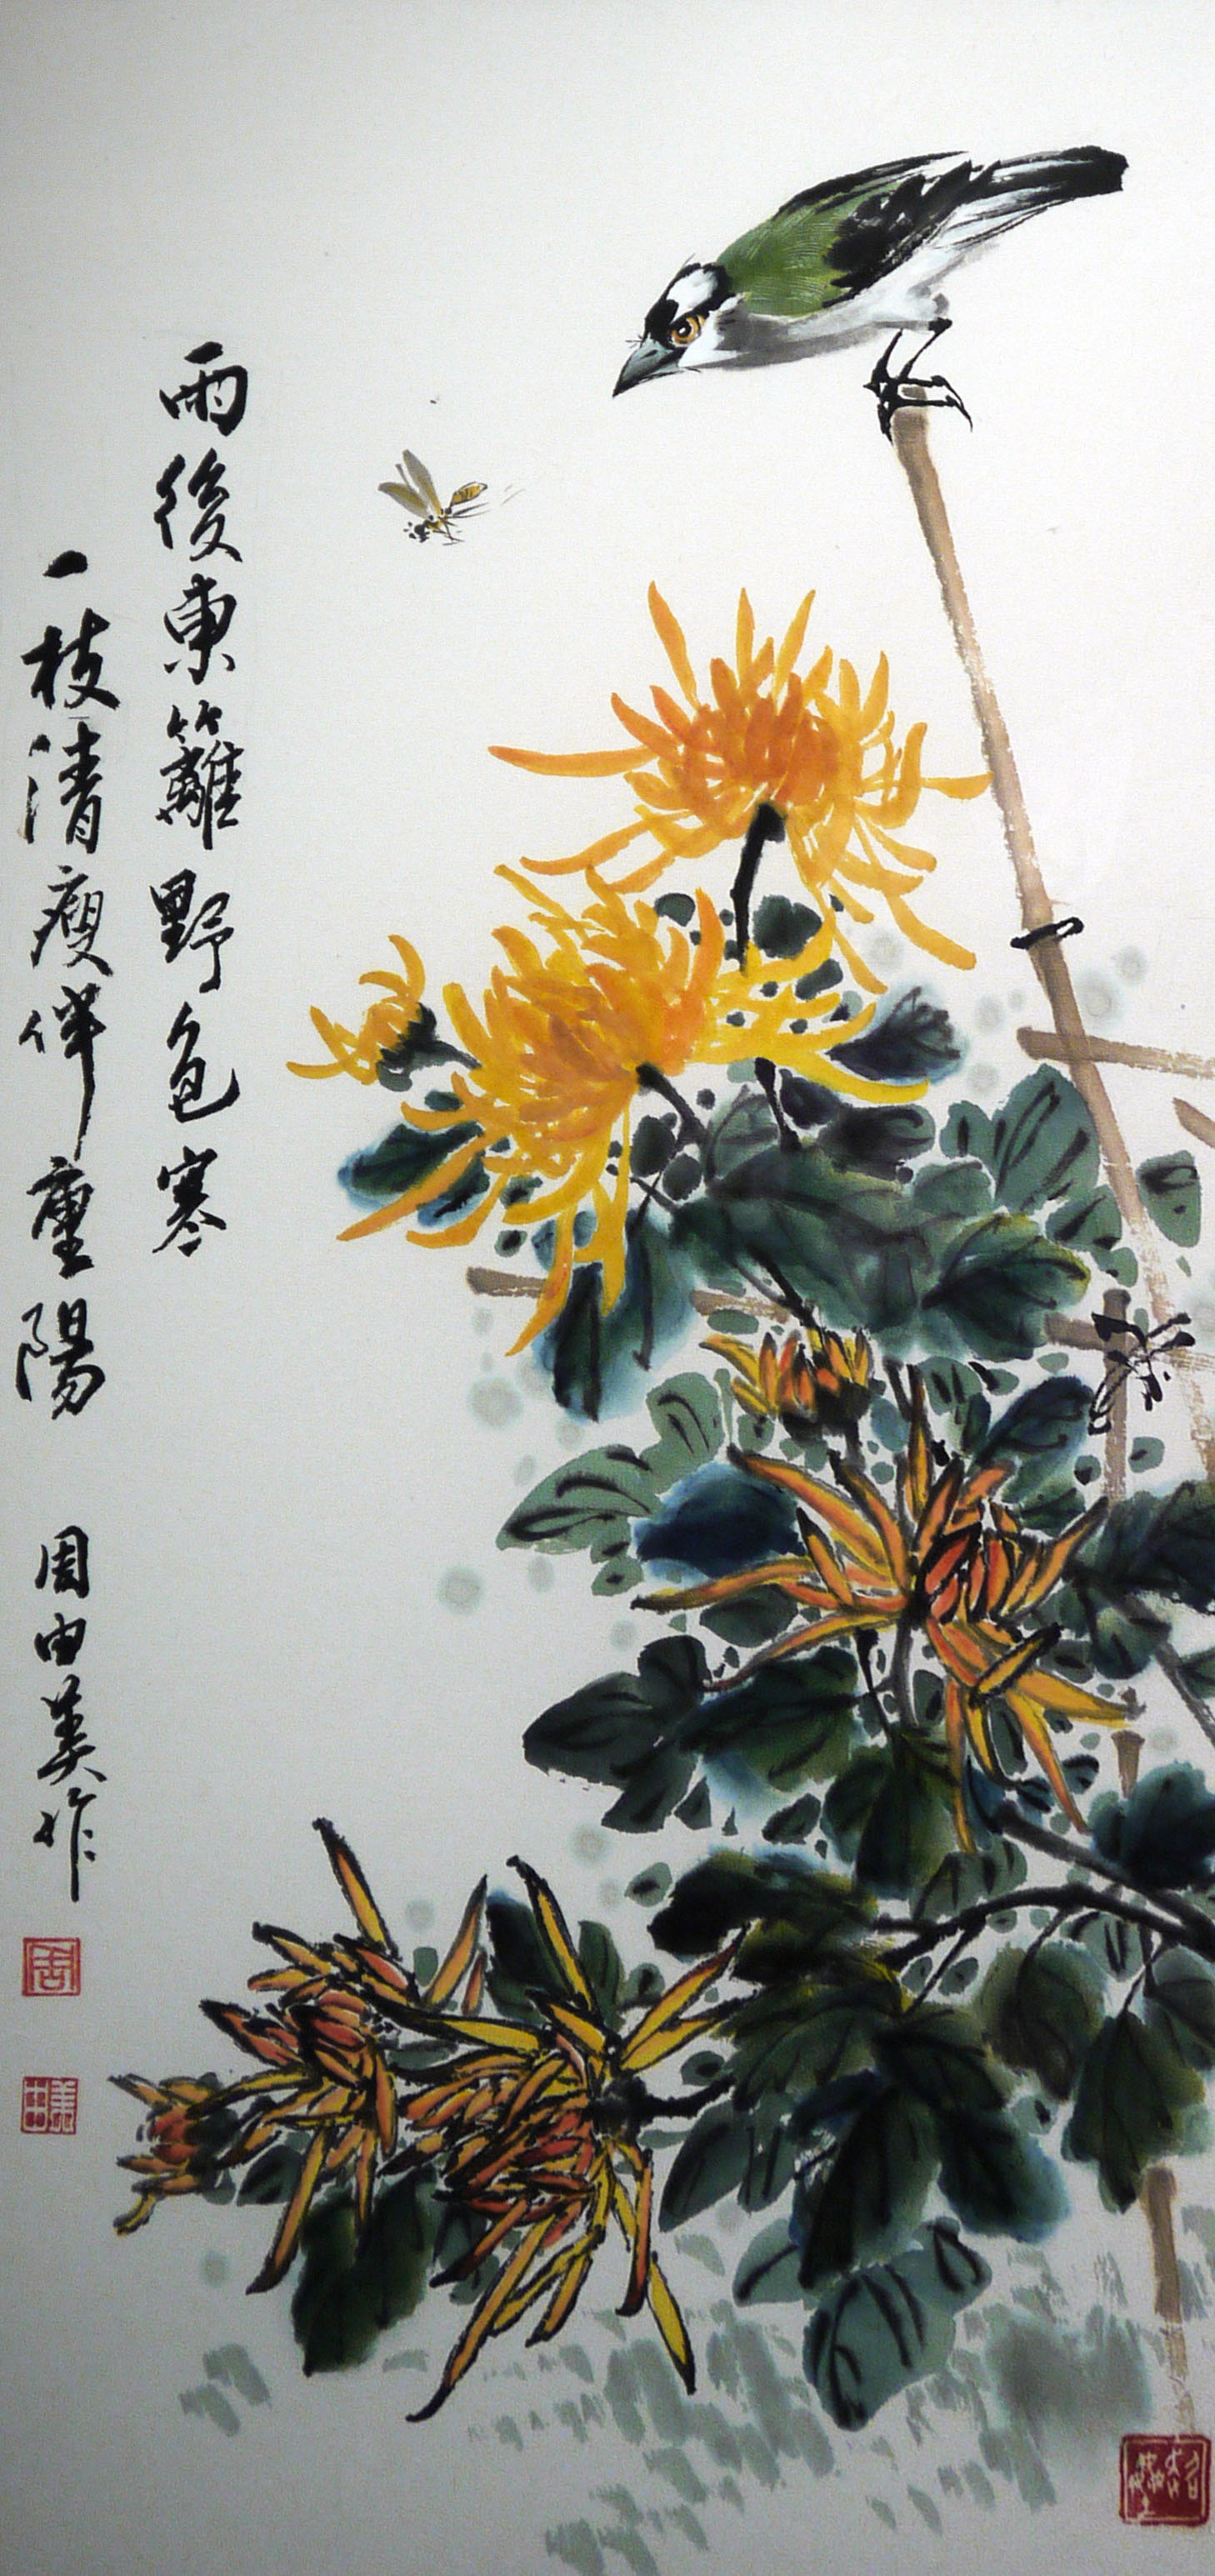 雨後東籬野色寒
一枝清瘦伴重陽
周由美作